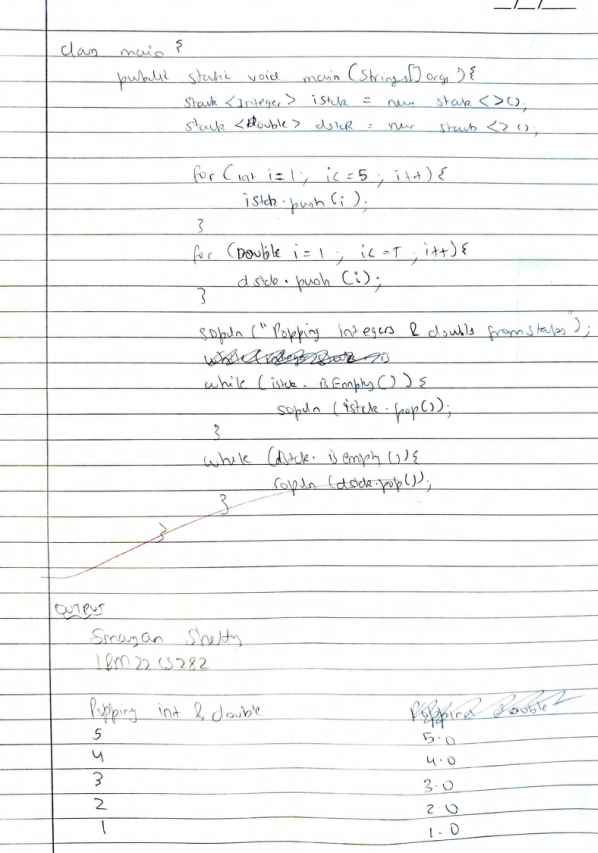 __/__/____
class main {
public static void main (Strings[] args) {
stack <Integer> istck = new stack <> ();
stack <Double> dstck = new stack <> ();
for (int i=1; i<=5; i++) {
istck.push (i);
}
for (Double i=1; i<=5; i++) {
dstck.push (i);
}
sopln ("Popping Integers & doubls from staks");
while (istck. isEmpty ()) {
sopln (istck.pop());
}
while (dstck. isempty ()) {
sopln (dstck.pop());
}
}
OUTPUT
Smayan Shetty
1BM22CS282
Popping int & double Popping double
5 5.0
4 4.0
3 3.0
2 2.0
1 1.0